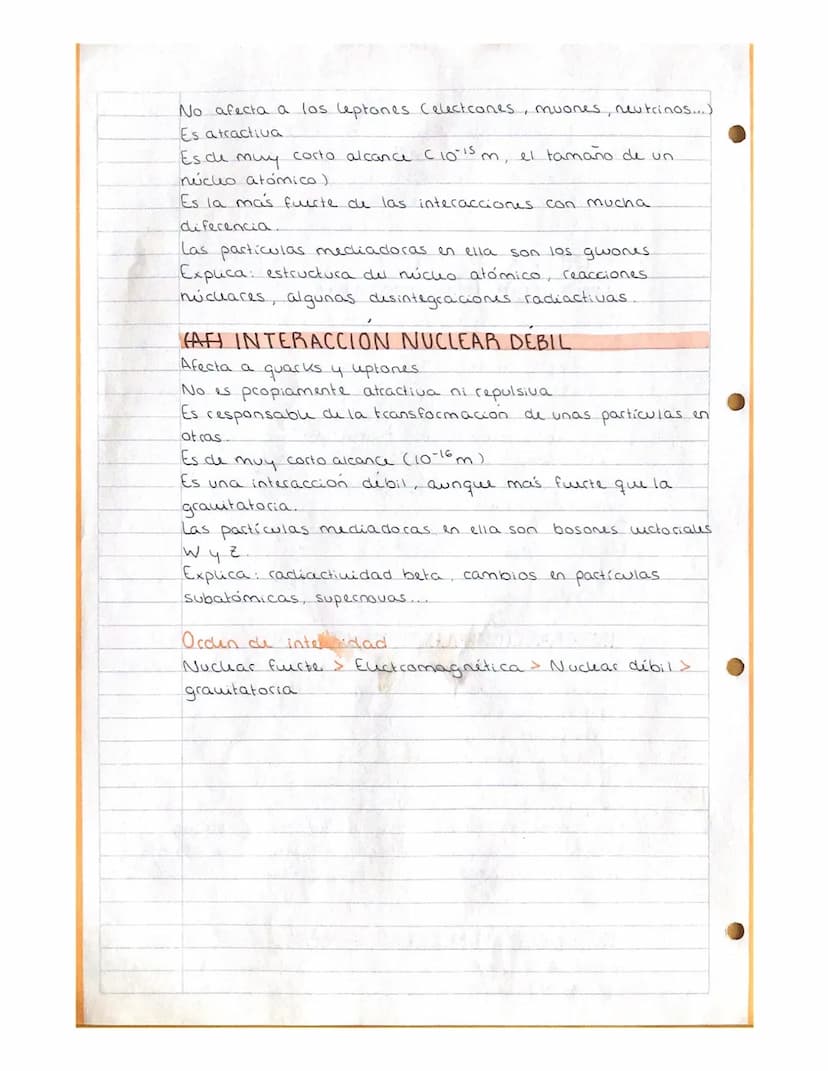 No afecta a los leptones (electrones, muones, neutrinos...)
Es atractiva
Es de muy corto alcance (10⁻¹⁵ m, el tamaño de un
núcleo atómico)
Es la más fuerte de las interacciones con mucha
diferencia.
Las partículas mediadoras en ella son los gluones
Explica: estructura del núcleo atómico, reacciones
núcleares, algunas desintegraciones radiactivas.
(AF) INTERACCIÓN NUCLEAR DÉBIL
Afecta a quarks y leptones
No es propiamente atractiva ni repulsiva
Es responsable de la transformación de unas partículas en
otras.
Es de muy corto alcance (10⁻¹⁶ m)
Es una interacción débil, aunque más fuerte que la
gravitatoria.
Las partículas mediadoras en ella son bosones vectoriales
W y Z.
Explica: radiactividad beta, cambios en partículas
subatómicas, supernovas...
Orden de intensidad
Nuclear fuerte > Electromagnética > Nuclear débil >
gravitatoria